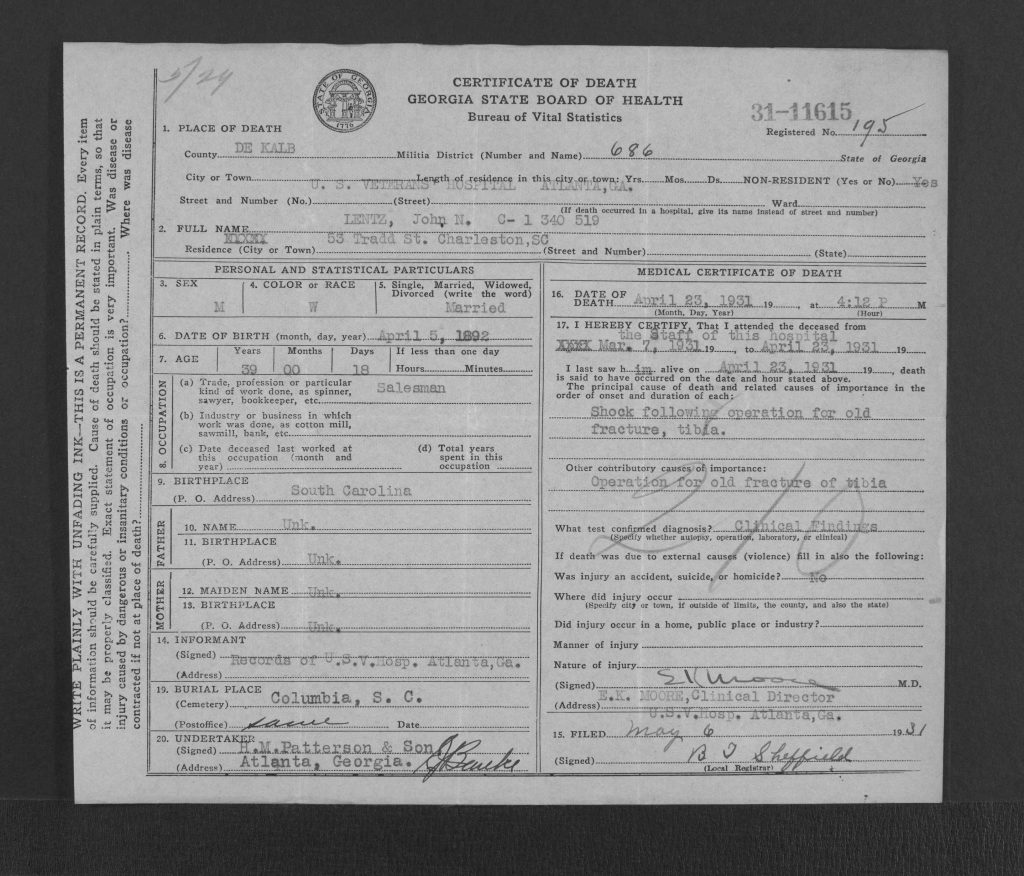 5/29
STATE OF GEORGIA
1776
CERTIFICATE OF DEATH
GEORGIA STATE BOARD OF HEALTH
Bureau of Vital Statistics
31-11615
Registered No. 195
1. PLACE OF DEATH
County DE KALB Militia District (Number and Name) 686 State of Georgia
City or Town Length of residence in this city or town: Yrs. Mos. Ds. NON-RESIDENT (Yes or No) Yes
U. S. VETERANS HOSPITAL ATLANTA,GA.
Street and Number (No.) (Street) Ward
(If death occurred in a hospital, give its name instead of street and number)
LENTZ, John N. C- 1 340 519
2. FULL NAME
53 Tradd St. Charleston,SC
Residence (City or Town) (Street and Number) (State)
PERSONAL AND STATISTICAL PARTICULARS
3. SEX M
4. COLOR or RACE W
5. Single, Married, Widowed, Divorced (write the word) Married
6. DATE OF BIRTH (month, day, year) April 5, 1892
7. AGE Years Months Days If less than one day
39 00 18 Hours Minutes
8. OCCUPATION
(a) Trade, profession or particular Salesman
kind of work done, as spinner,
sawyer, bookkeeper, etc.
(b) Industry or business in which
work was done, as cotton mill,
sawmill, bank, etc.
(c) Date deceased last worked at
this occupation (month and
year)
(d) Total years
spent in this
occupation
9. BIRTHPLACE
(P. O. Address) South Carolina
FATHER
10. NAME Unk.
11. BIRTHPLACE
(P. O. Address) Unk.
MOTHER
12. MAIDEN NAME Unk.
13. BIRTHPLACE
(P. O. Address) Unk.
14. INFORMANT
(Signed) Records of U.S.V.Hosp. Atlanta,Ga.
(Address)
19. BURIAL PLACE
(Cemetery) Columbia, S. C.
(Postoffice) same Date
20. UNDERTAKER
(Signed) H.M.Patterson & Son
(Address) Atlanta, Georgia.
MEDICAL CERTIFICATE OF DEATH
16. DATE OF
DEATH April 23, 1931 19 , at 4:12 P M
(Month, Day, Year) (Hour)
17. I HEREBY CERTIFY, That I attended the deceased from
the Staff of this hospital
Mar. 7, 1931 19 , to April 23, 1931 19
I last saw h im alive on April 23, 1931 19 , death
is said to have occurred on the date and hour stated above.
The principal cause of death and related causes of importance in the
order of onset and duration of each:
Shock following operation for old
fracture, tibia.
Other contributory causes of importance:
Operation for old fracture of tibia
What test confirmed diagnosis? Clinical Findings
(Specify whether autopsy, operation, laboratory, or clinical)
If death was due to external causes (violence) fill in also the following:
Was injury an accident, suicide, or homicide? No
Where did injury occur
(Specify city or town, if outside of limits, the county, and also the state)
Did injury occur in a home, public place or industry?
Manner of injury
Nature of injury
(Signed) E K Moore M.D.
E.K. MOORE,Clinical Director
(Address)
U.S.V.Hosp. Atlanta,Ga.
15. FILED May 6 1931
(Signed) B T Sheffield
(Local Registrar)
WRITE PLAINLY WITH UNFADING INK—THIS IS A PERMANENT RECORD. Every item
of information should be carefully supplied. Cause of death should be stated in plain terms, so that
it may be properly classified. Exact statement of occupation is very important. Was disease or
injury caused by dangerous or insanitary conditions or occupation? Where was disease
contracted if not at place of death?